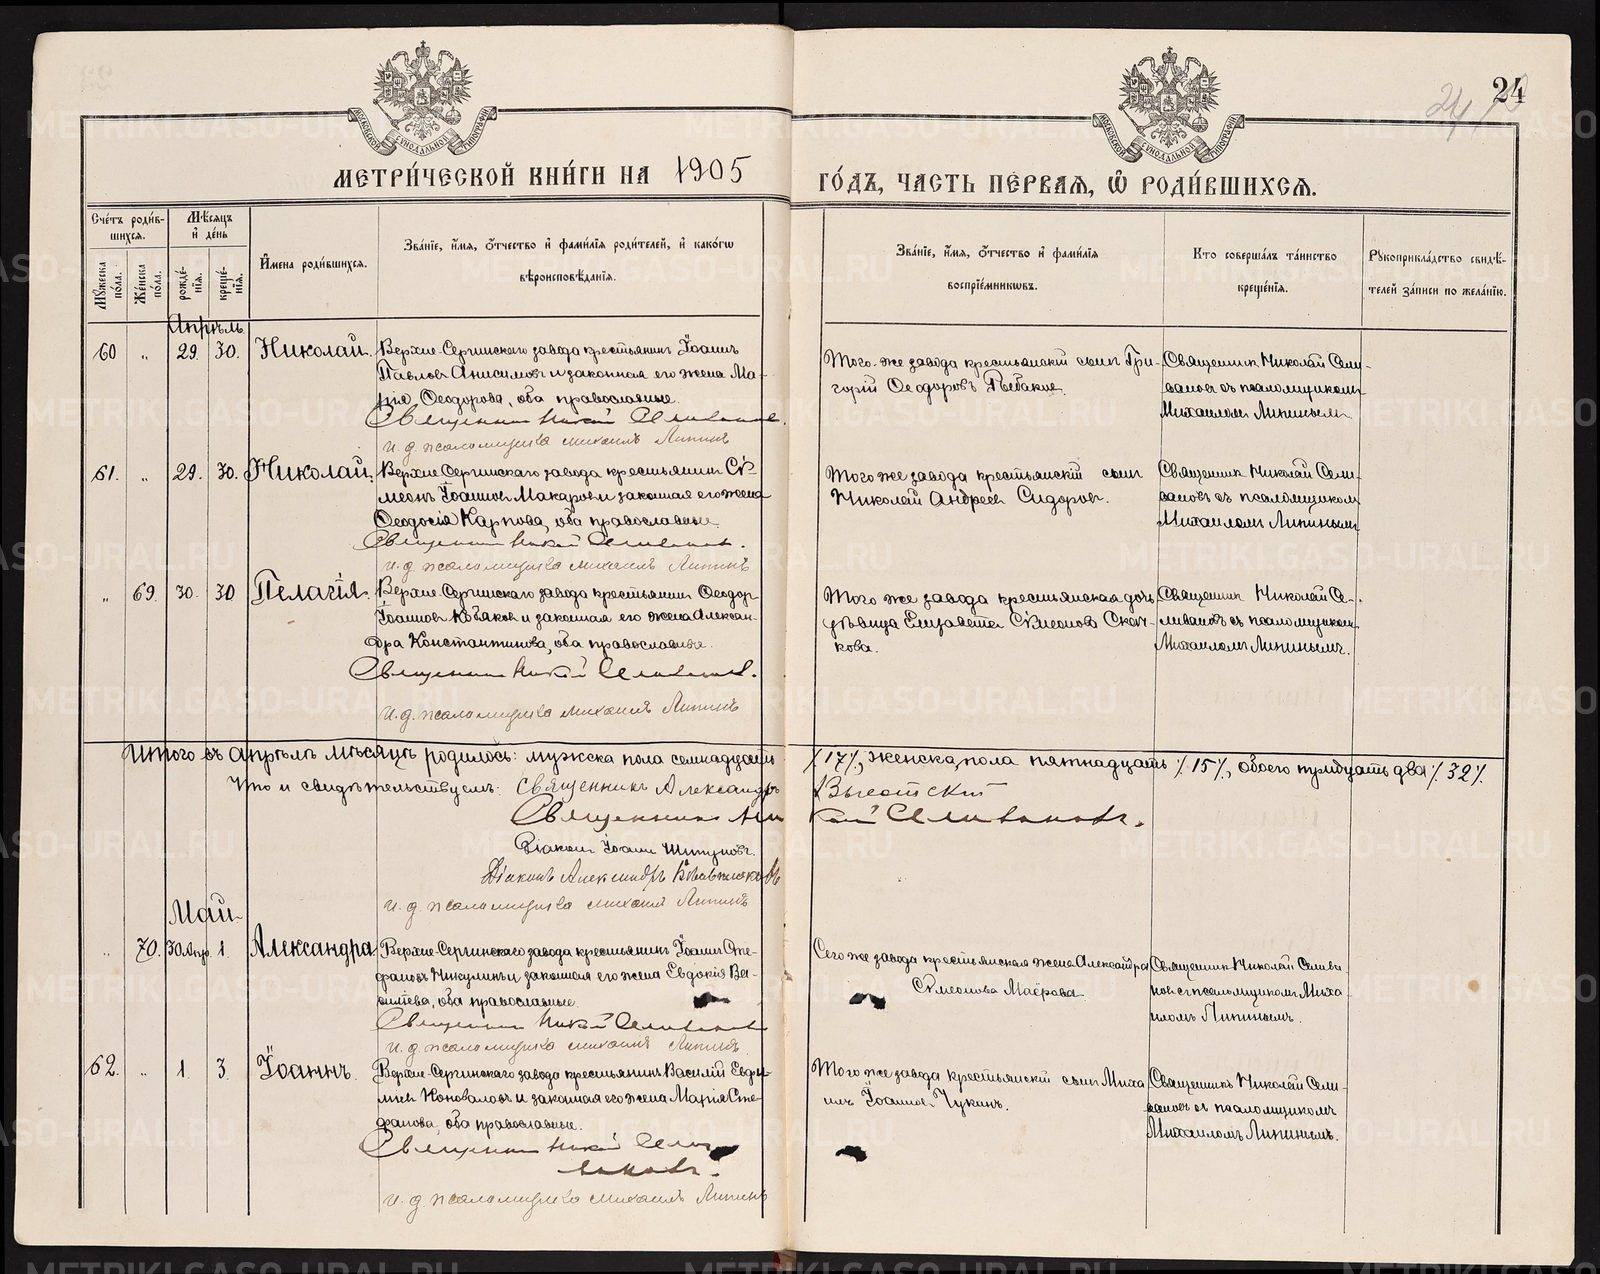 24
МЕТРИ́ЧЕСКОЙ КНИ́ГИ НА 1905
ГО́ДЪ, ЧАСТЬ ПЕ́РВАѦ, Ѡ РОДИ́ВШИХСѦ.
Сче́тъ роди́в-
шихсѧ.
Мѣ́сѧцъ
и҆ де́нь
Мꙋ́жеска по́ла.
Же́нска по́ла.
рожде́-
нїѧ.
креще́-
нїѧ.
И҆мена роди́вшихсѧ.
Зва́нїе, и҆́мѧ, ѻ҆́тчество и҆ фами́лїѧ роди́телей, и҆ како́гѡ
вѣроисповѣ́данїѧ.
Зва́нїе, и҆́мѧ, ѻ҆́тчество и҆ фами́лїѧ
воспрїе́мникѡвъ.
Кто соверша́лъ та́инство
креще́нїѧ.
Рꙋкоприкла́дство свидѣ́-
телей за́писи по жела́нїю.
Апрѣль
60 „ 29. 30. Николай.
Верхне-Сергинскаго завода крестьянинъ Іоаннъ
Павловъ Анисимовъ и законная его жена Ма-
рія Ѳеодорова, оба православные.
Священникъ Николай Селивановъ.
и. д. псаломщика Михаилъ Липинъ
Того-же завода крестьянскій сынъ Гри-
горій Ѳеодоровъ
Священникъ Николай Сели-
вановъ съ псаломщикомъ
Михаиломъ Липинымъ
61. „ 29. 30. Николай.
Верхне-Сергинскаго завода крестьянинъ Сѵ-
меонъ Іоанновъ Макаровъ и законная его жена
Ѳеодосія Карпова, оба православные.
Священникъ Николай Селивановъ.
и. д. псаломщика Михаилъ Липинъ
Того же завода крестьянскій сынъ
Николай Андреевъ Сидоровъ.
Священникъ Николай Сели-
вановъ съ псаломщикомъ
Михаиломъ Липинымъ
„ 69. 30. 30 Пелагія.
Верхне-Сергинскаго завода крестьянинъ Ѳеодоръ
Іоанновъ Кобяковъ и законная его жена Алексан-
дра Константинова, оба православные.
Священникъ Николай Селивановъ.
и. д. псаломщика Михаилъ Липинъ
Того же завода крестьянская дочь
дѣвица Елизавета Сѵмеонова Скач-
кова.
Священникъ Николай Се-
ливановъ съ псаломщикомъ
Михаиломъ Липинымъ.
Итого въ Апрѣлѣ мѣсяцѣ родилось: мужска пола семнадцать /17/, женска пола пятнадцать /15/, обоего тридцать два /32/.
Что и свидѣтельствуемъ: Священникъ Александръ Высотскій
Священникъ Николай Селивановъ.
Діаконъ Іоаннъ Шипуновъ.
Діаконъ Александръ
и. д. псаломщика Михаилъ Липинъ
Май
„ 70. 30 Апр. 1. Александра
Верхне-Сергинскаго завода крестьянинъ Іоаннъ Сте-
фановъ Никулинъ и законная его жена Евдокія Ва-
силіева, оба православные.
Священникъ Николай Селивановъ
и. д. псаломщика Михаилъ Липинъ
Сего же завода крестьянская жена Александра
Сѵмеонова Маерова.
Священникъ Николай Селива-
новъ съ псаломщикомъ Миха-
иломъ Липинымъ.
62. „ 1 3. Іоаннъ.
Верхне-Сергинскаго завода крестьянинъ Василій Евѳи-
міевъ Коноваловъ и законная его жена Марія Сте-
фанова, оба православные.
Священникъ Николай Сели-
вановъ.
и. д. псаломщика Михаилъ Липинъ
Того же завода крестьянскій сынъ Миха-
илъ Іоанновъ Чукинъ.
Священникъ Николай Сели-
вановъ съ псаломщикомъ
Михаиломъ Липинымъ.
METRIKI.GASO-URAL.RU